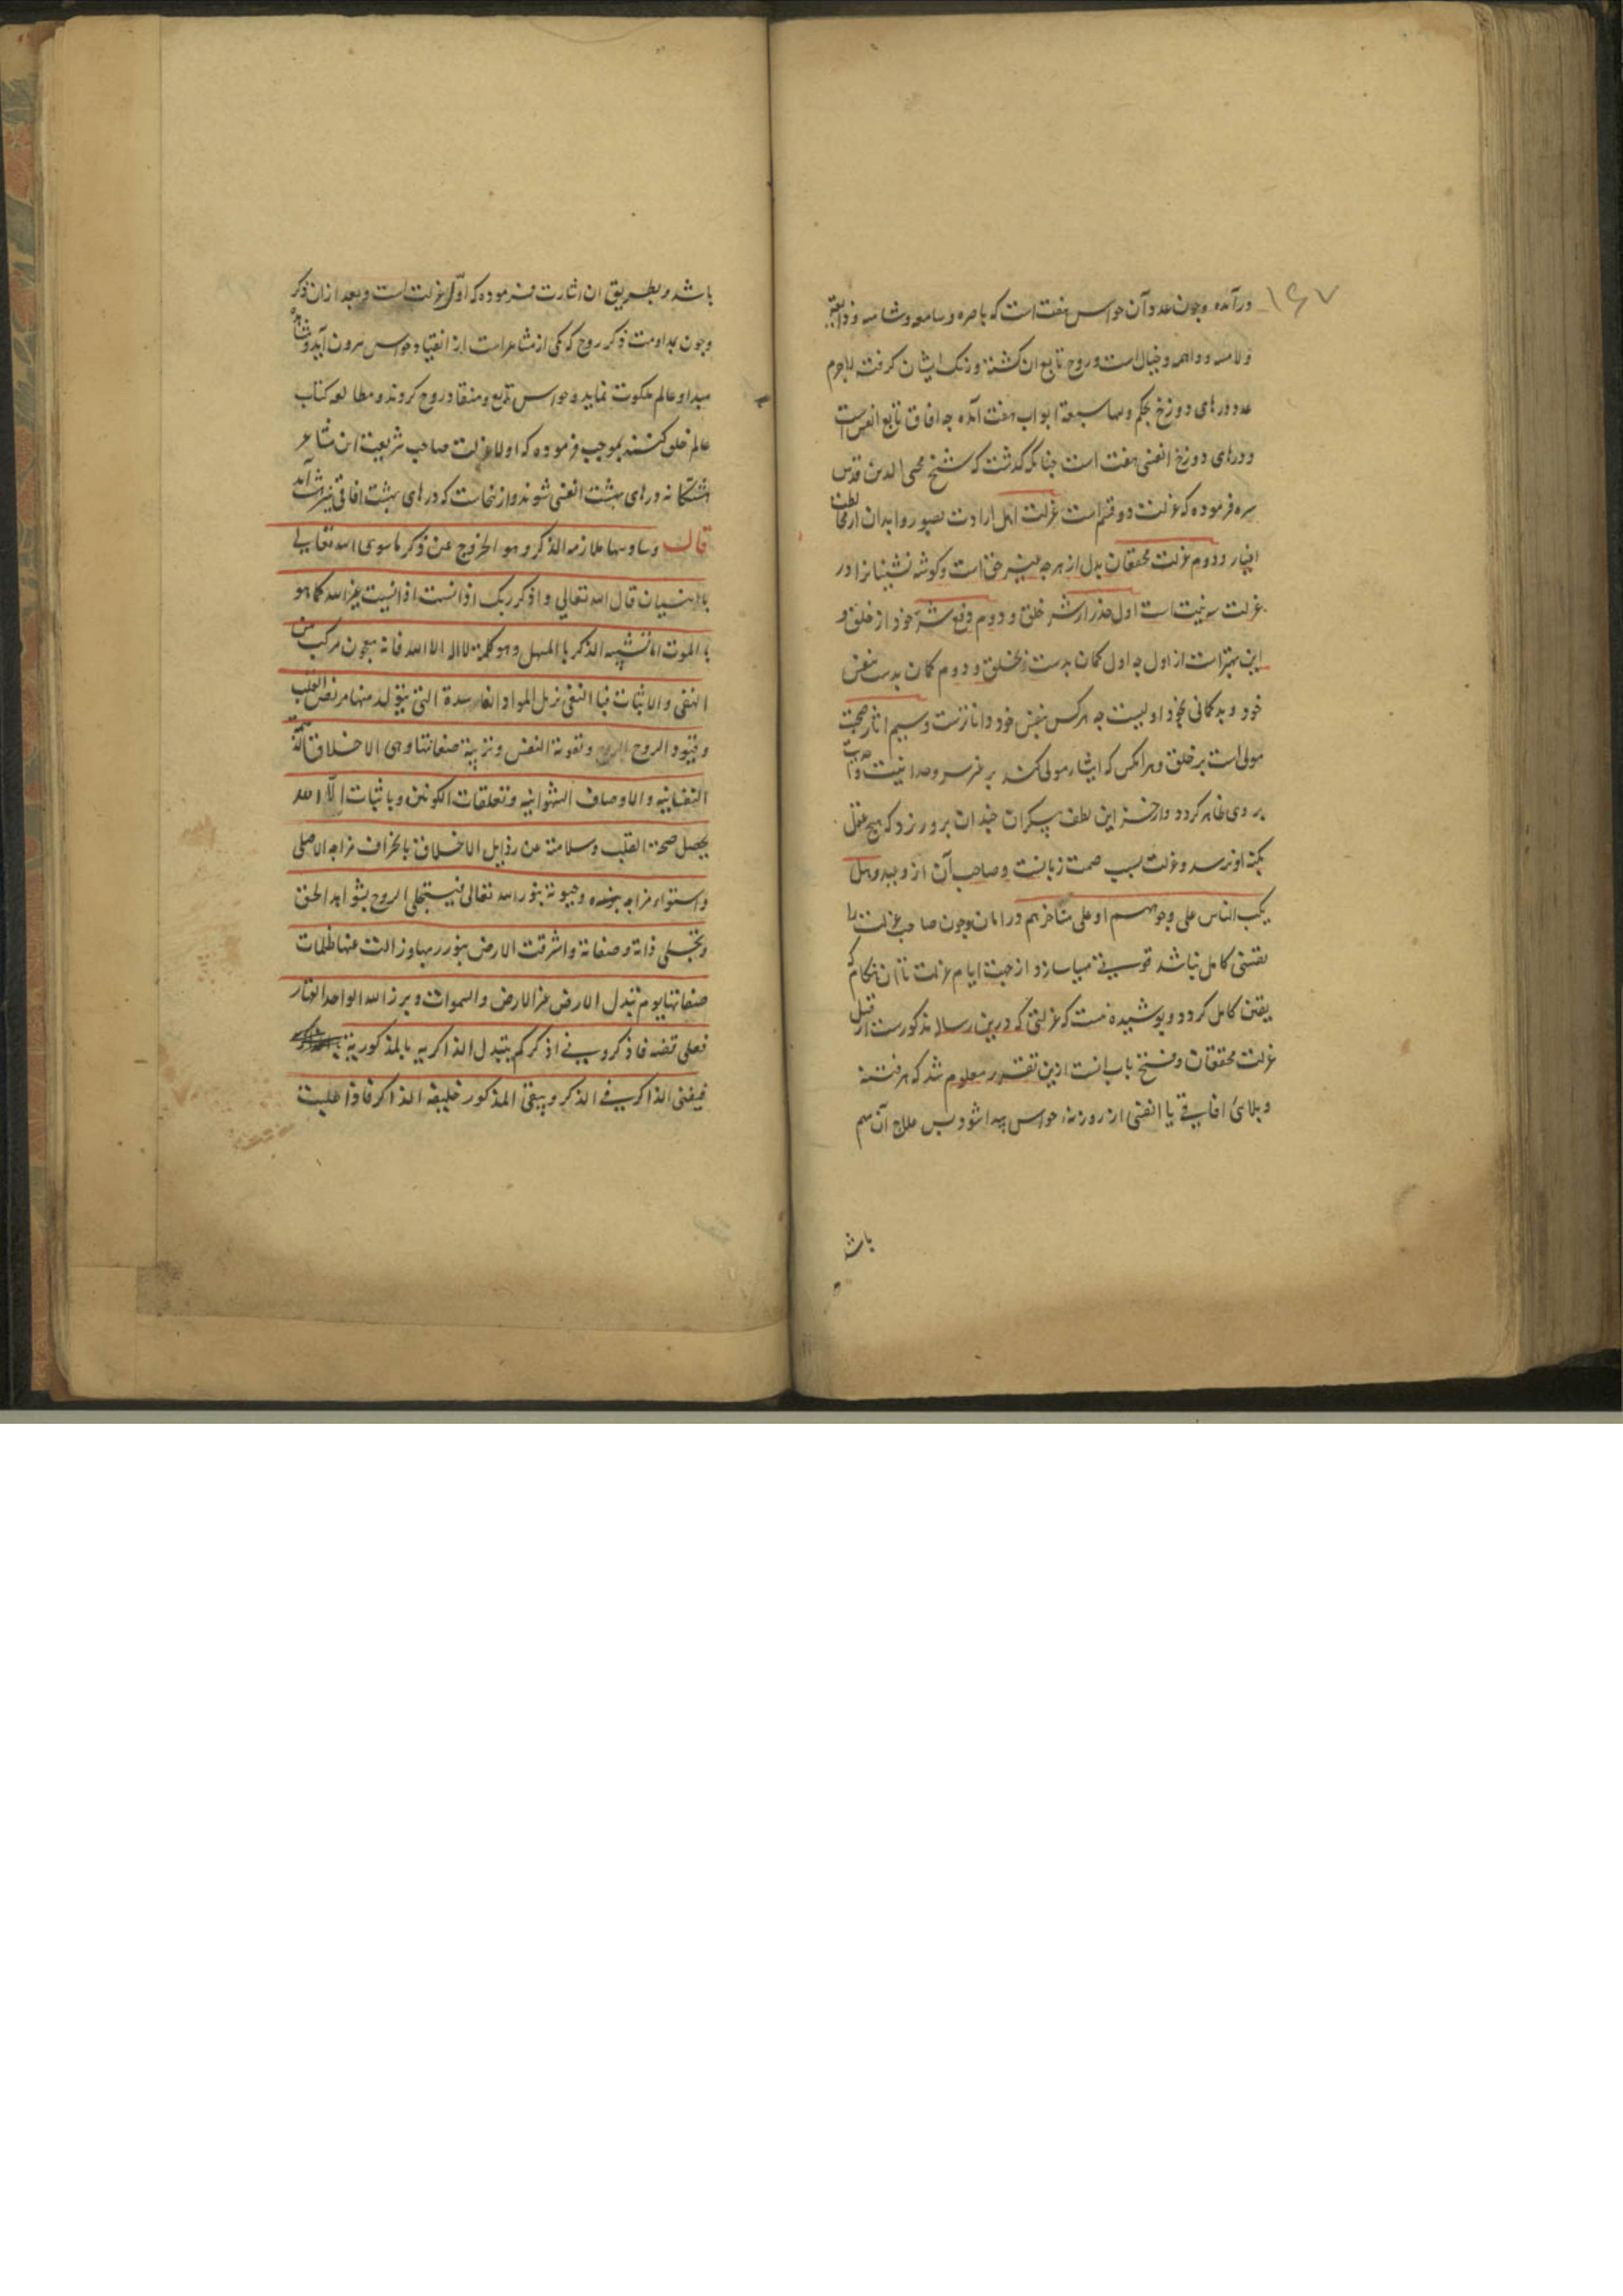 ۱۶۷
درآمده وچون عدد آن حواس هفت است که باصره وسامعه وشامه وذایقه
ولامسه وواهمه وخیال است وروح تابع ان کشته ورنک ایشان کرفته لاجرم
عدد درهای دوزخ بحکم ولها سبعة ابواب هفت آمده چه افاق تابع انفس است
ودرهای دوزخ انفسی هفت است چنانکه کذشت که شیخ محی الدین قدس
سره فرموده که عزلت دو قسم است عزلت اهل ارادت بصور وابدان از مخالطت
اغیار ودوم عزلت محققان بدل از هرچه غیر حق است وکوشه نشینانرا در
عزلت سه نیت است اول حذر از شر خلق و دوم دفع شر خود از خلق و
این بهتر است از اول چه اول کمان بدست بخلق و دوم کمان بدست بنفس
خود و بدکمانی بخود اولیست چه هرکس بنفس خود داناترست وسیم ایثار صحبت
مولی است بر خلق وهرانکس که ایثار مولی کند بر غیر سر وحدانیت
بر وی ظاهر کردد واز خزاین لطف بیکران چندان برو ریزد که هیچ عقل
بکنه او نرسد وعزلت سبب صمت زبانست وصاحب آن از وبهل
یکب الناس علی وجوههم او علی مناخرهم در امان وچون صاحب عزلت را
یقینی کامل نباشد قوتی مهیا سازد از جهت ایام عزلت تا آن هنکام که
یقین کامل کردد وپوشیده نیست که عزلتی که درین رساله مذکورست از قبیل
عزلت محققان وفتح باب انست ازین تقریر معلوم شد که هر فتنه
وبلائ افاقی یا انفسی از روزنه حواس پیدا شود پس علاج آن هم
باشد
باشد وبطریق ان اشارت فرموده که اوّل عزلت است وبعد ازان ذکر
وچون بمداومت ذکر روح که یکی از مشاعر است از انقیاد حواس بیرون آید ومشاهده
مبدا وعالم ملکوت نماید وحواس تابع ومنقاد روح کردند ومطالعه کتاب
عالم خلق کنند بموجب فرموده که اولا عزلت صاحب شریعت این مشاعر
هشتکانه درهای بهشت انفسی شوند وازینجاست که درهای بهشت افاقی نیز هشت آمد
قال وسادسها ملازمه الذکر وهو الخروج عن ذکر ماسوی الله تعالی
بالنسیان قال الله تعالی واذکر ربک اذا نسیت اذا نسیت غیر الله کما هو
بالموت اما تشبیه الذکر بالمسهل وهو کلمة لا اله الا الله فانه معجون مرکب من
النفی والاثبات فبالنفی یزیل المواد الفاسدة التی یتولد منها مرض القلب
وقیود الروح وتقویة النفس وتربیة صفاتها وهی الاخلاق الذمیمة
النفسانیه والاوصاف الشهوانیه وتعلقات الکونین وباثبات الّا الله
یحصل صحة القلب وسلامته عن رذایل الاخلاق بانحراف مزاجه الاصلی
واستواء مزاجه بنوره وحیوته بنور الله تعالی فیتجلی الروح بشواهد الحق
وتجلی ذاته وصفاته واشرقت الارض بنور ربها وزالت عنها ظلمات
صفاتها یوم تبدل الارض غیر الارض والسموات وبرزوا لله الواحد القهار
فعلی قضیه فاذکرونی اذکرکم یتبدل الذاکریه بالمذکوریة
فیفنی الذاکر فی الذکر ویبقی المذکور خلیفه الذاکر فاذا طلبت